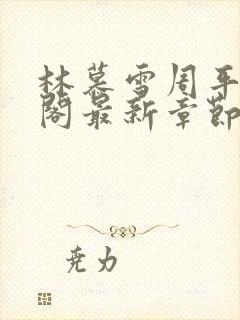 林慕雪周平
阁最新章节
尧力